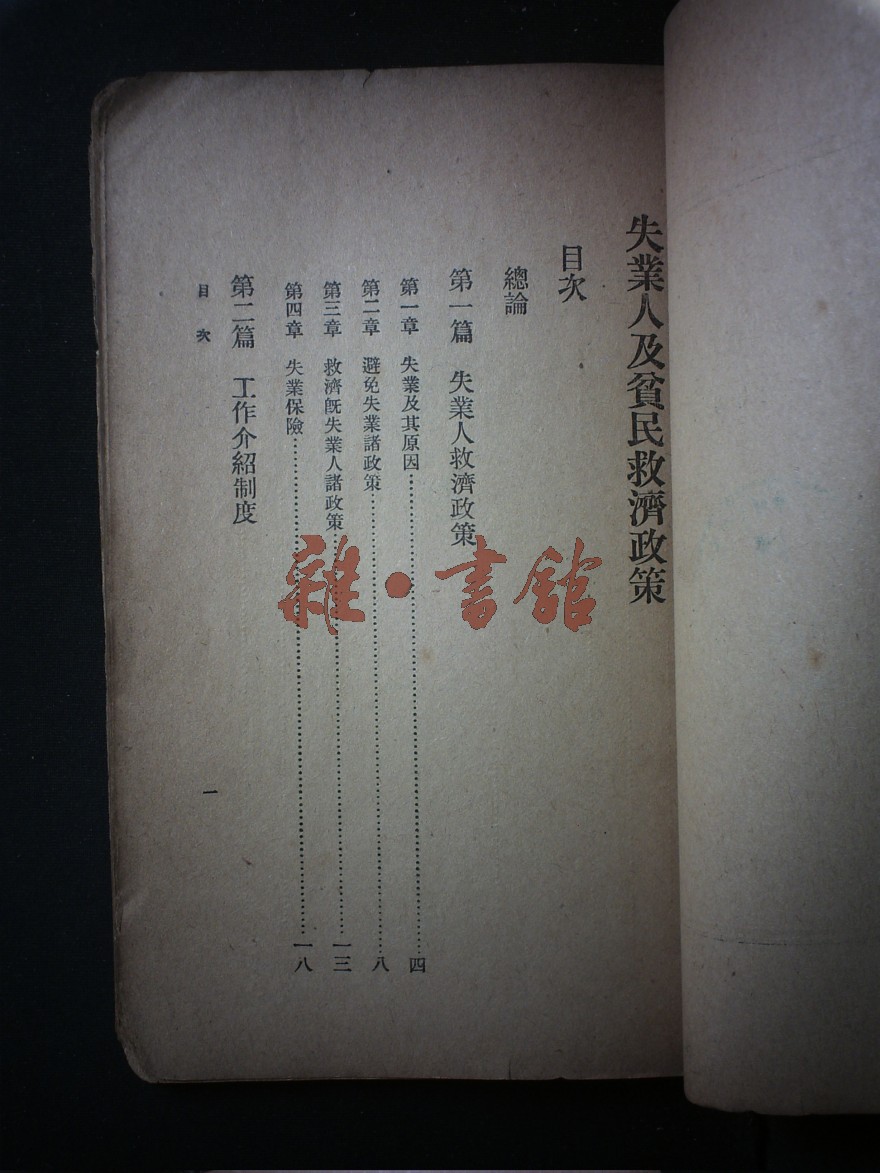 失業人及貧民救濟政策
目次
總論
第一篇 失業人救濟政策
第一章 失業及其原因……四
第二章 避免失業諸政策……八
第三章 救濟旣失業人諸政策……一三
第四章 失業保險……一八
第二篇 工作介紹制度
目次 一
雜·書館